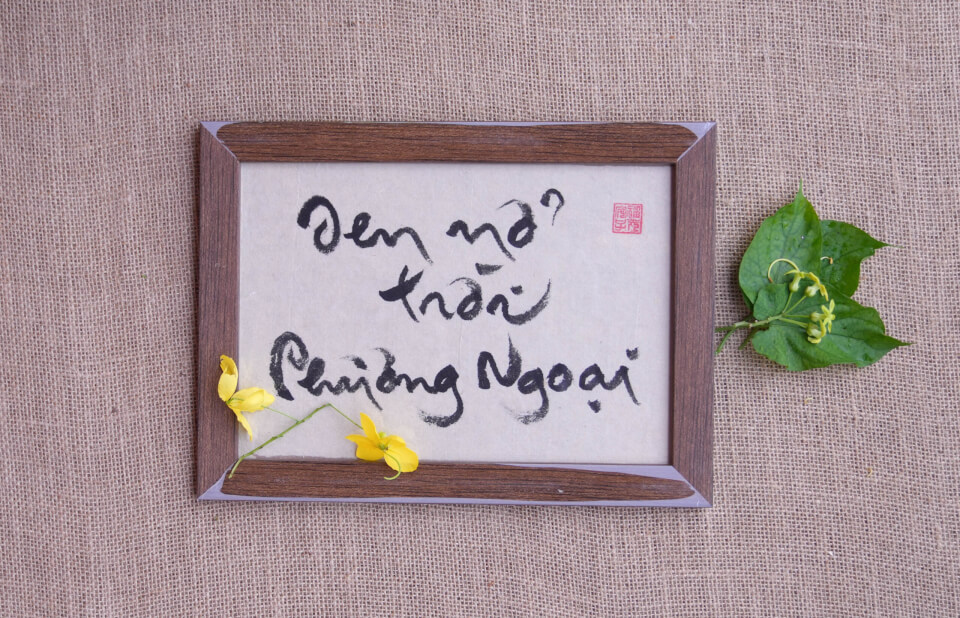 Sen nở
trời
Phương Ngoại